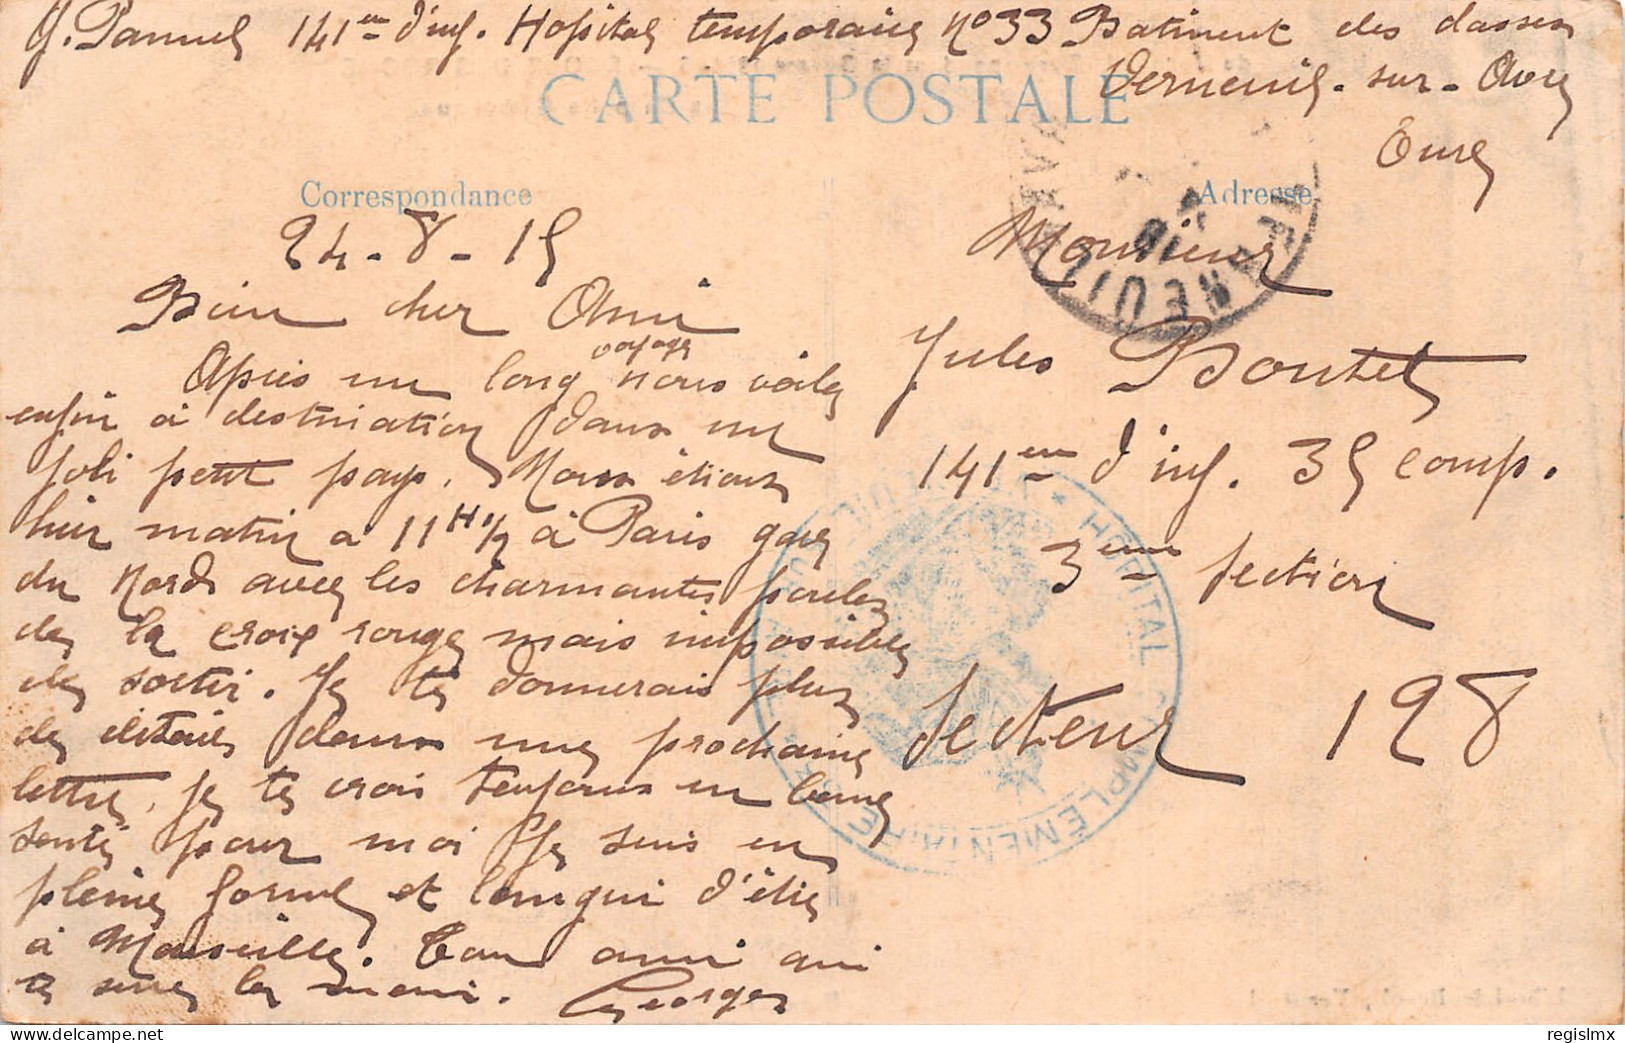 G. Pannel 141em d'inf. Hopital temporaire no 33 Batiment des classes
Verneuil-sur-Avre
Eure
CARTE POSTALE
Correspondance
Adresse
24-8-15
Bien cher Ami
Apres un long voyage nous voila
enfin à destination dans un
joli petit pays. Nous étions
hier matin a 11H 1/2 à Paris gare
du Nord avec les charmantes poules
de la croix rouge mais impossible
de sortir. Je te donnerais plus
de détails dans une prochaine
lettre, je te crois toujours en bonne
santé pour moi je suis en
pleine forme et langui d'étre
à Marseille. Ton ami qui
te serre la main. Georges
Monsieur
Jules Boutet
141em d'inf. 35 comp.
3eme section
Secteur 198
VERNEUIL
HOPITAL COMPLEMENTAIRE
regislmx